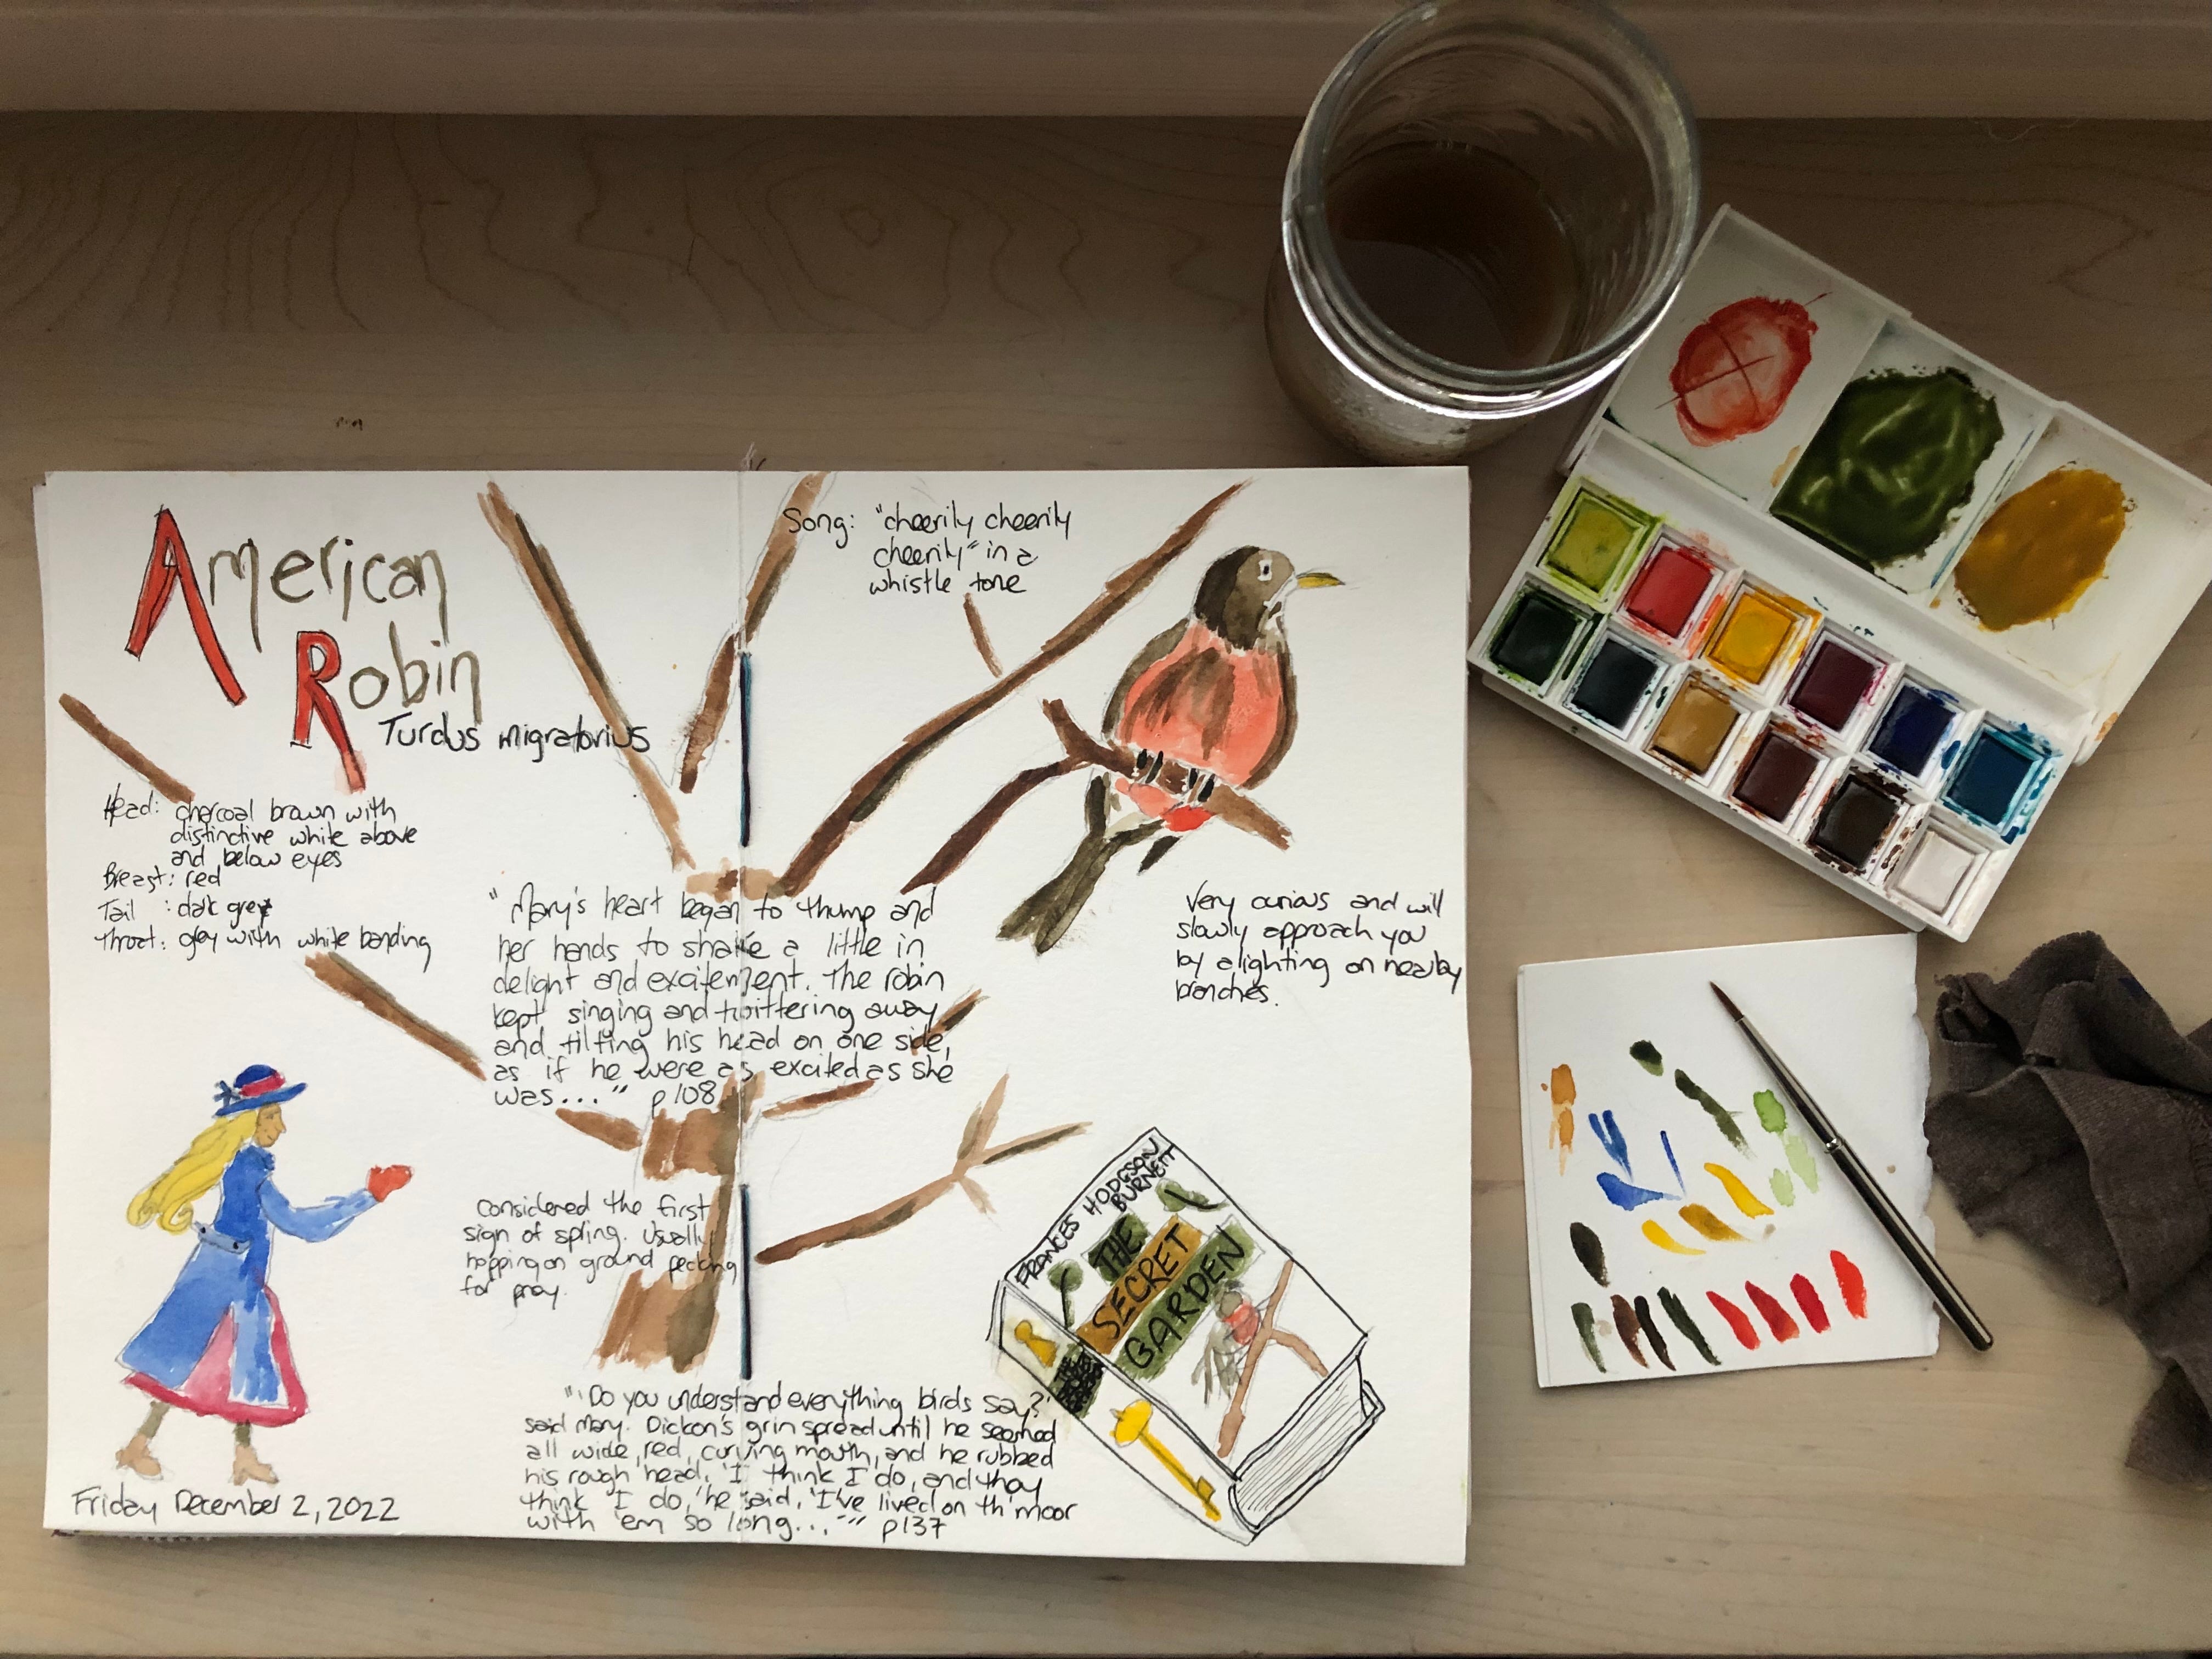 American
Robin
Turdus migratorius
Head: charcoal brown with
distinctive white above
and below eyes
Breast: red
Tail : dark grey
Throat: grey with white banding
Song: "cheerily cheerily
cheerily" in a
whistle tone
"Mary's heart began to thump and
her hands to shake a little in
delight and excitement. The robin
kept singing and twittering away
and tilting his head on one side,
as if he were as excited as she
was..." p108
Very curious and will
slowly approach you
by alighting on nearby
branches.
Considered the first
sign of spring. Usually
hopping on ground pecking
for prey.
FRANCES HODGSON
BURNETT
THE
SECRET
GARDEN
"'Do you understand everything birds say?'
said Mary. Dickon's grin spread until he seemed
all wide, red, curving mouth, and he rubbed
his rough head. 'I think I do, and they
think I do,' he said. 'I've lived on th' moor
with 'em so long...'" p137
Friday December 2, 2022